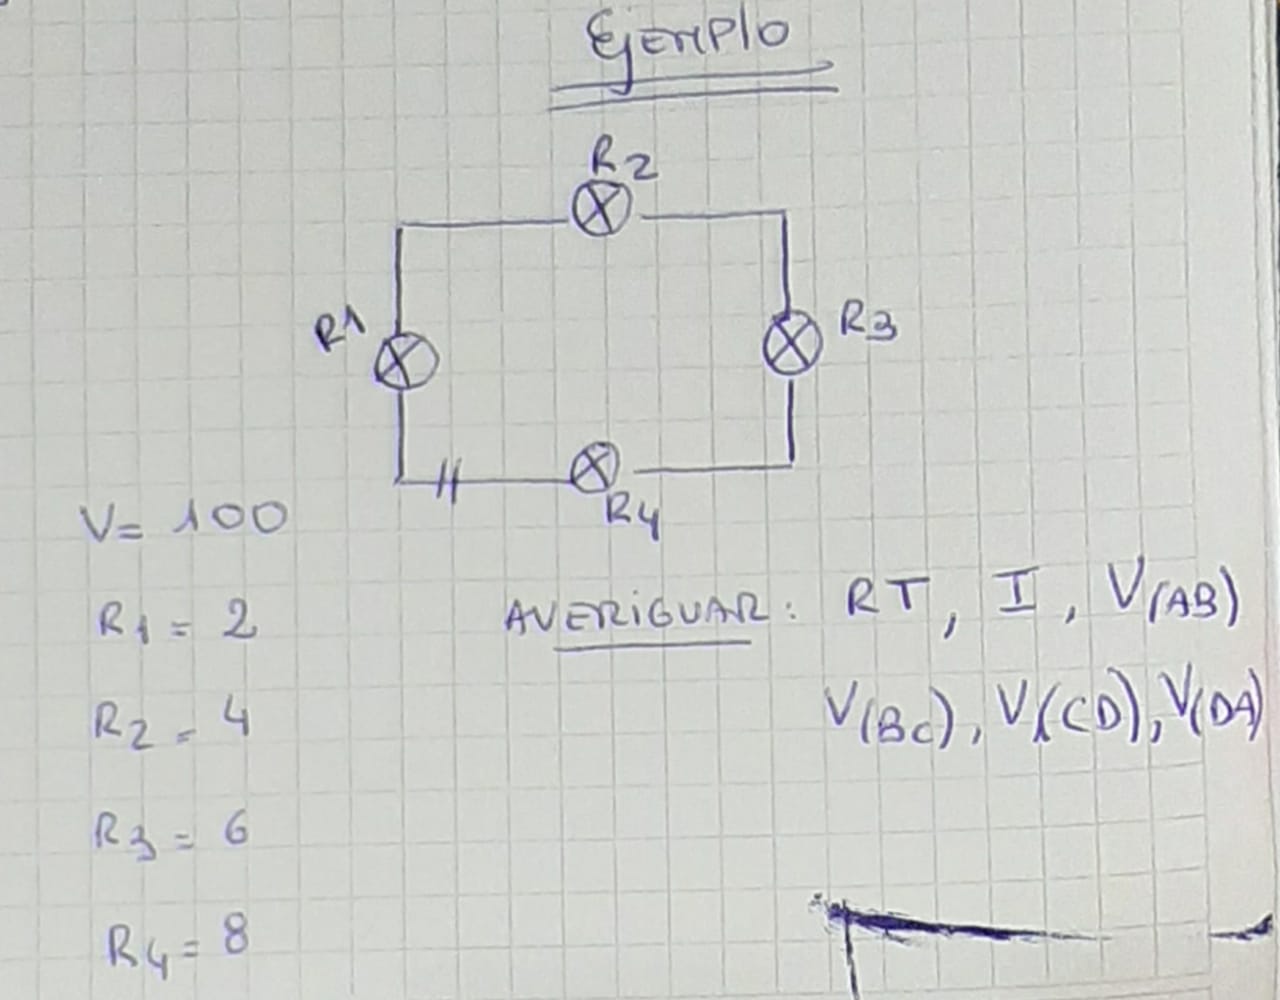 Ejemplo
R2
R1
R3
R4
V= 100
R1 = 2
AVERIGUAR: RT, I, V(AB)
R2 = 4
V(BC), V(CD), V(DA)
R3 = 6
R4 = 8